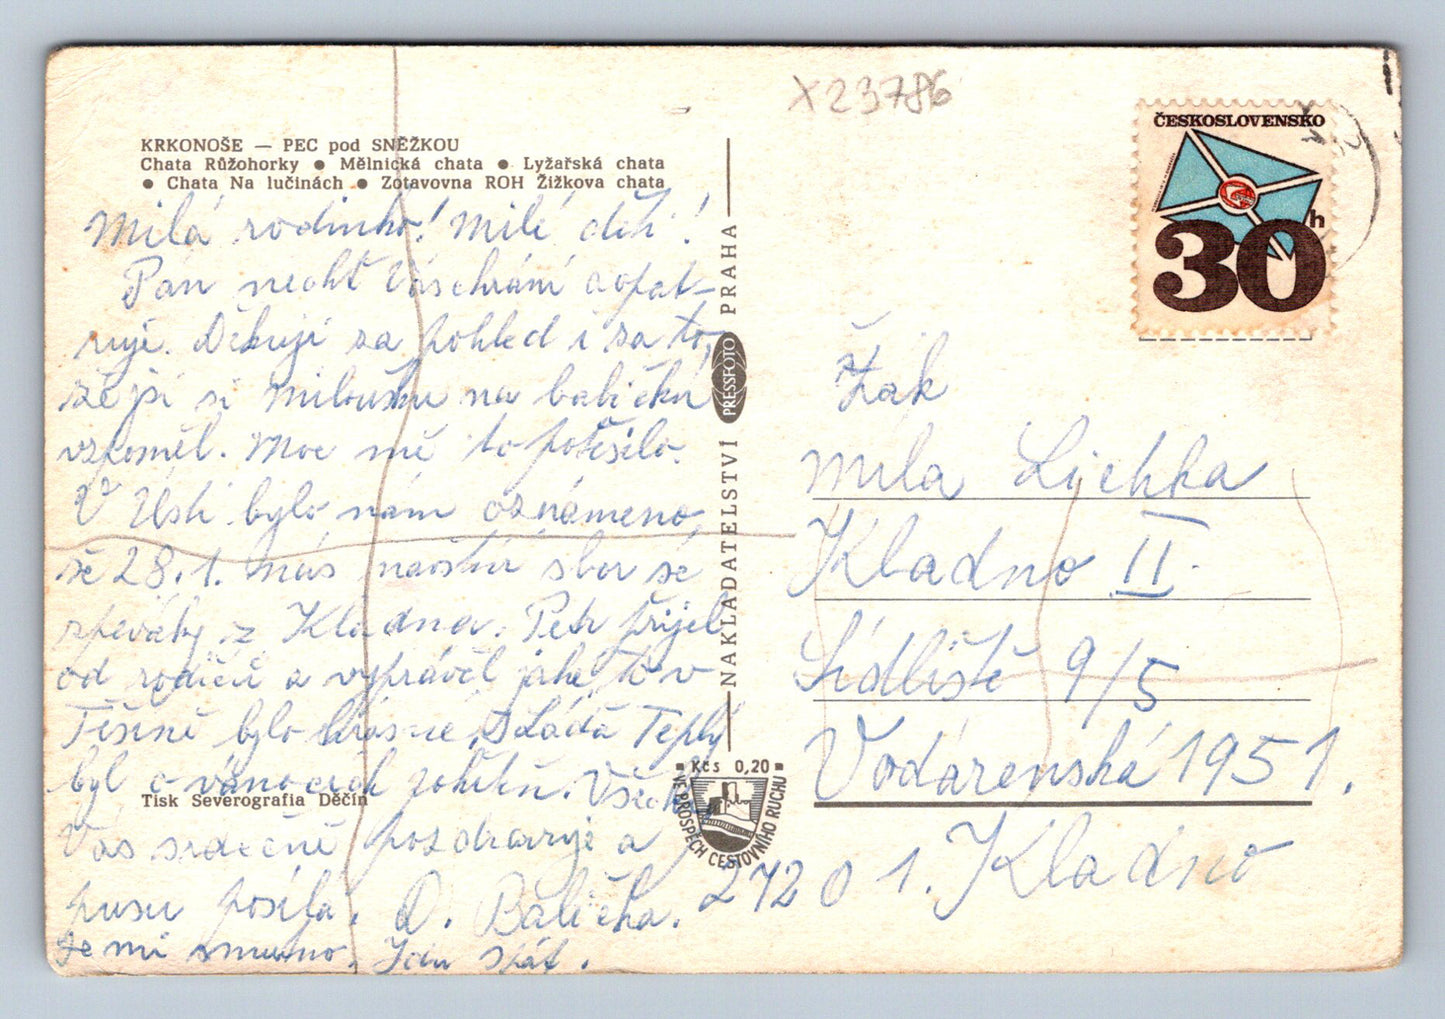 X23786
KRKONOŠE — PEC pod SNĚŽKOU
Chata Růžohorky ● Mělnická chata ● Lyžařská chata
● Chata Na lučinách ● Zotavovna ROH Žižkova chata
Milá rodinko! Milé děti!
Pán nechť Vás chrání a opat-
ruje. Děkuji za pohled i za to,
že jsi si Miloušku na babičku
vzpoměl. Moc mě to potěšilo.
V Ústí bylo nám oznámeno,
že 28.1. nás navštíví sbor se
zpěváky z Kladna. Petr přijel
od rodičů a vyprávěl jaké to v
Těšíně bylo krásné, Láďa Teplý
byl o vánocích potěšen. Všechny
Vás srdečně pozdravuje a
pusu posílá. D. Babička.
Je mi smutno. Jdu spát.
Tisk Severografia Děčín
NAKLADATELSTVÍ PRESSFOTO PRAHA
Kčs 0,20
VE PROSPĚCH CESTOVNÍHO RUCHU
ČESKOSLOVENSKO
30h
Žák
Mila Lichka
Kladno II.
Sídliště 9/5
Vodárenská 1951.
27201. Kladno